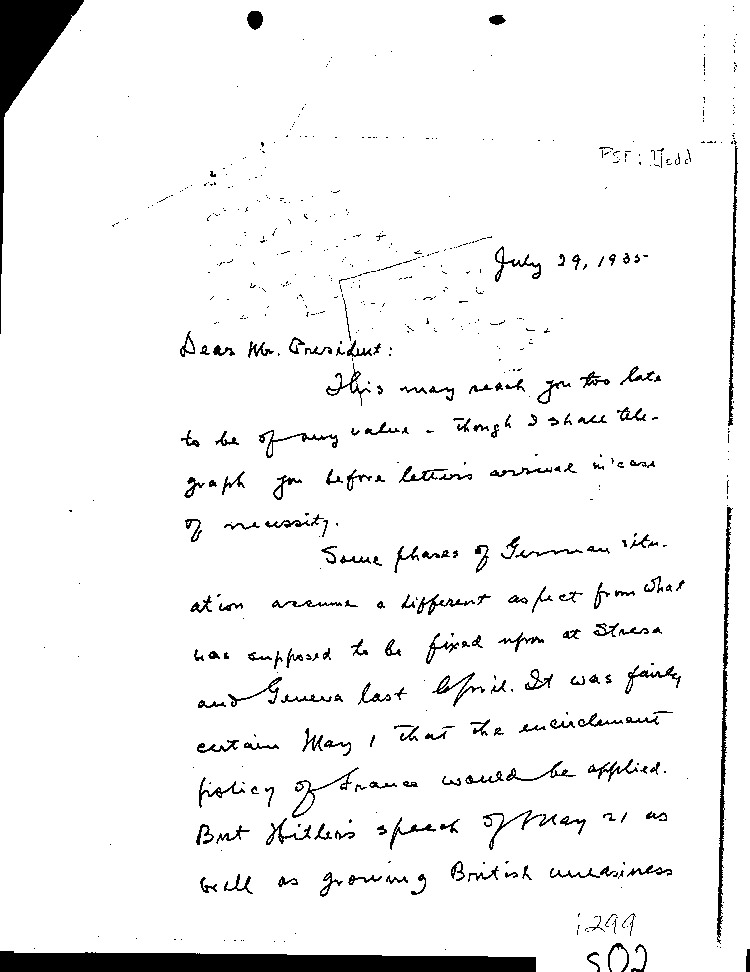 PSF: Dodd
July 29, 1935
Dear Mr. President:
This may reach you too late
to be of any value - though I shall tele-
graph you before letter's arrival in case
of necessity.
Some phases of German situ-
ation assume a different aspect from what
was supposed to be fixed upon at Stresa
and Geneva last April. It was fairly
certain May 1 that the encirclement
policy of France would be applied.
But Hitler's speech of May 21 as
well as growing British uneasiness
1299
502